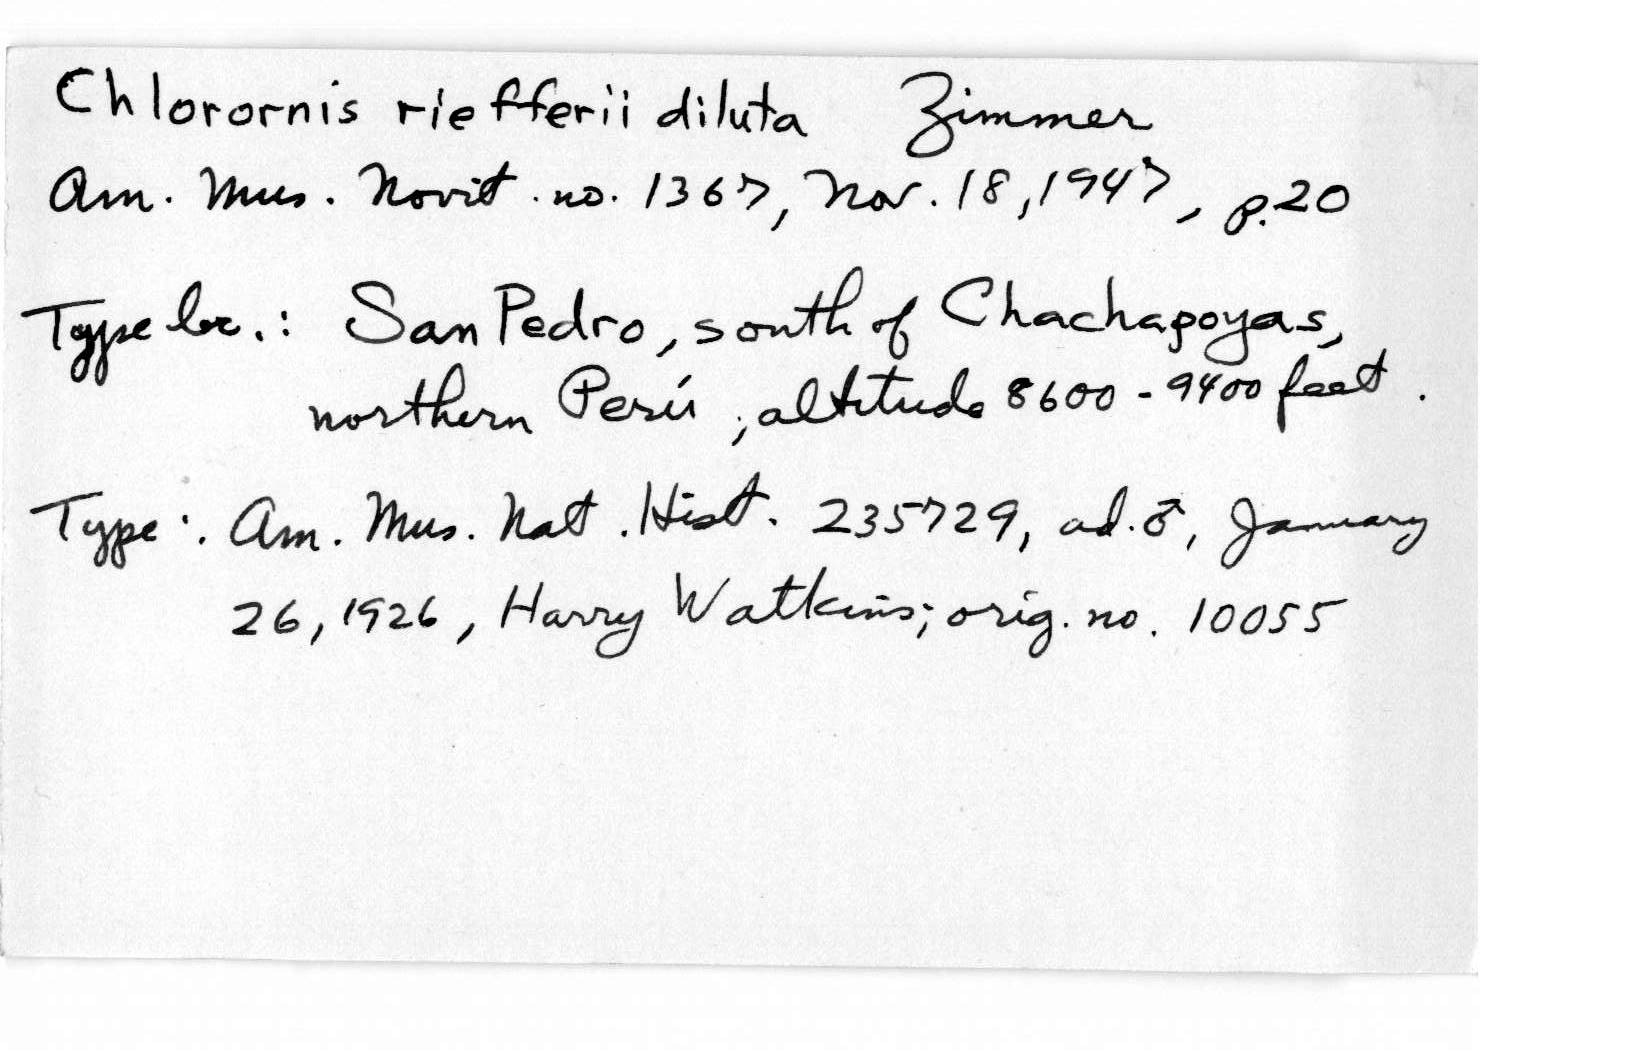 Chlorornis riefferii diluta Zimmer
Am. Mus. Novit. no. 1367, Nov. 18, 1947, p.20
Type loc.: San Pedro, south of Chachapoyas,
northern Perú; altitude 8600-9400 feet.
Type: Am. Mus. Nat. Hist. 235729, ad. ♂, January
26, 1926, Harry Watkins; orig. no. 10055